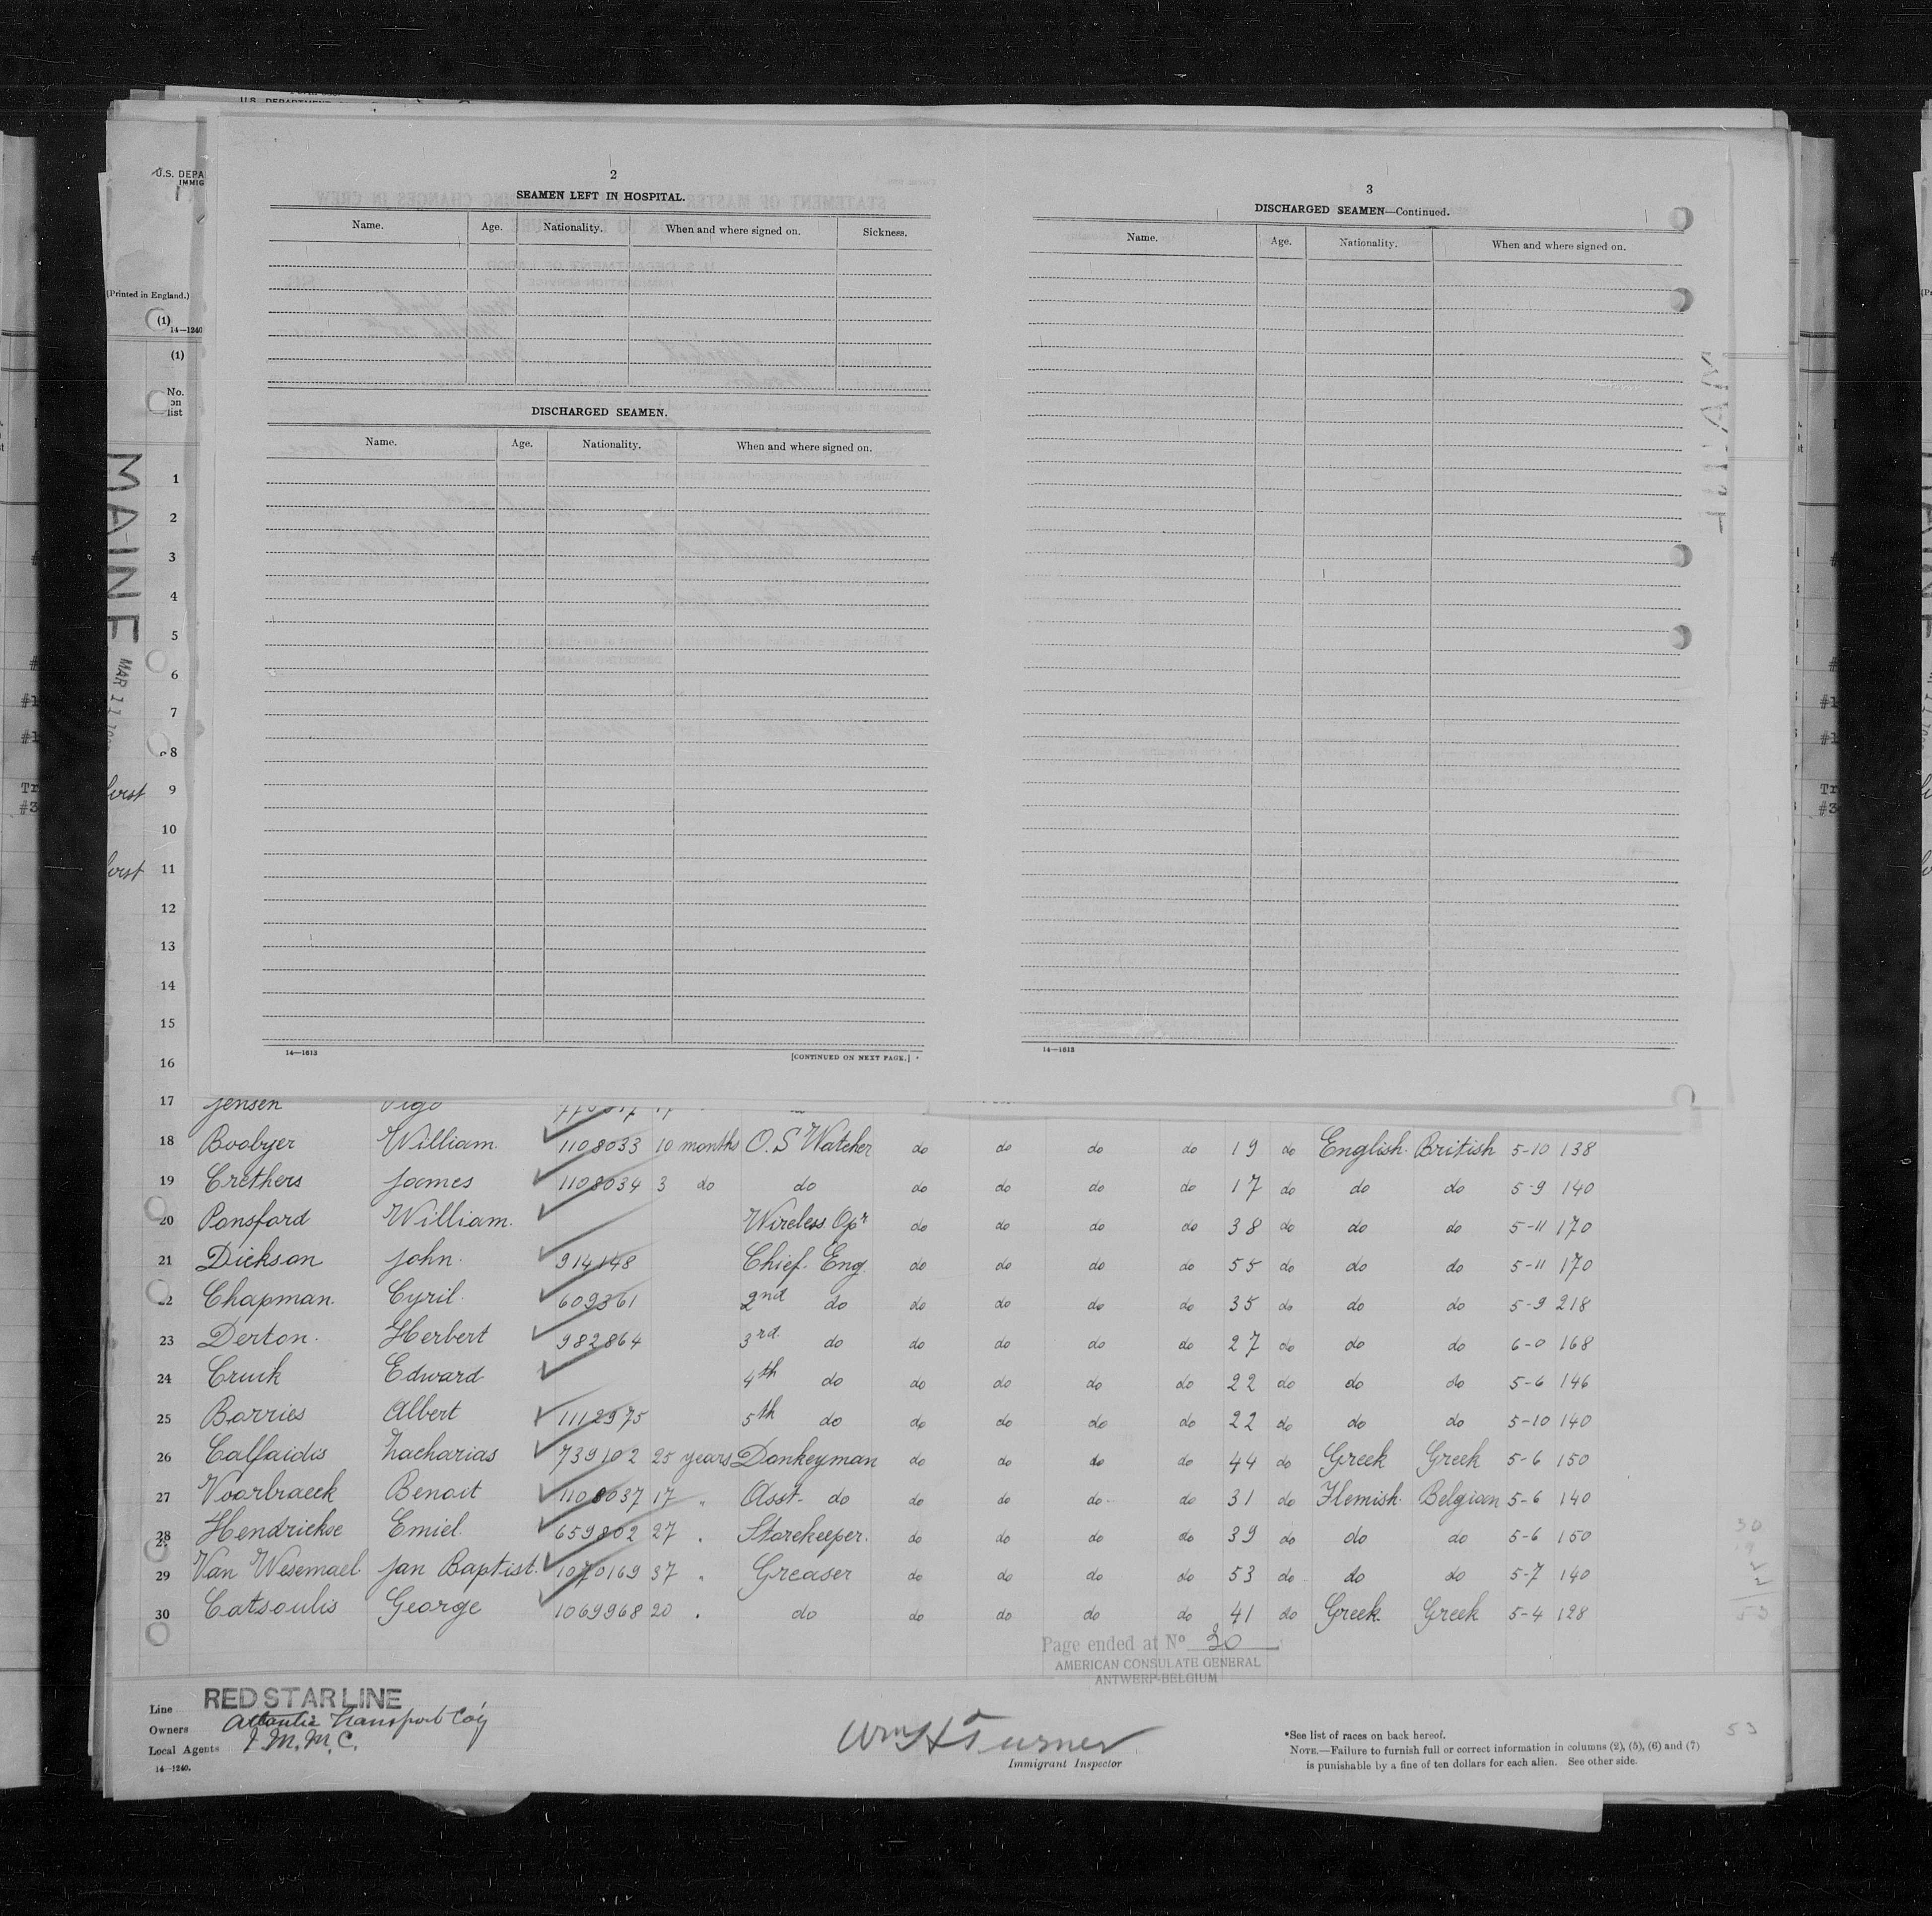 U.S. DEPA
IMMIG
(Printed in England.)
(1)
14—1240
(1)
No.
on
list
MAINE
MAR 11
2
SEAMEN LEFT IN HOSPITAL.
Name. Age. Nationality. When and where signed on. Sickness.
DISCHARGED SEAMEN.
Name. Age. Nationality. When and where signed on.
14—1613 [CONTINUED ON NEXT PAGE.]
3
DISCHARGED SEAMEN—Continued.
Name. Age. Nationality. When and where signed on.
14—1613
1
2
3
4
5
6
7
8
9
10
11
12
13
14
15
16
17 Jensen Vigo
18 Boobyer William. 1108033 10 months O.S Watcher do do do do 19 do English. British 5-10 138
19 Crethers James 1108034 3 do do do do do do 17 do do do 5-9 140
20 Ponsford William. Wireless Opr do do do do 38 do do do 5-11 170
21 Dickson John. 914148 Chief. Eng. do do do do 55 do do do 5-11 170
22 Chapman. Cyril. 609361 2nd do do do do do 35 do do do 5-9 218
23 Derton. Herbert 982864 3rd. do do do do do 27 do do do 6-0 168
24 Cruik Edward 4th do do do do do 22 do do do 5-6 146
25 Barries Albert 1112975 5th do do do do do 22 do do do 5-10 140
26 Calfaidis Zacharias 739102 25 years Donkeyman do do do do 44 do Greek Greek 5-6 150
27 Voorbraeck Benoit 1108037 17 " Asst. do do do do do 31 do Flemish. Belgian 5-6 140
28 Hendrickse Emiel. 659802 27 " Storekeeper. do do do do 39 do do do 5-6 150
29 Van Wesemael Jan Baptist. 1070169 37 " Greaser do do do do 53 do do do 5-7 140
30 Catsoulis George 1069968 20 " do do do do do 41 do Greek. Greek 5-4 128
Page ended at No 30
AMERICAN CONSULATE GENERAL
ANTWERP-BELGIUM
Line RED STAR LINE
Owners Atlantic Transport Coy
Local Agents I.M.M.C.
14—1240.
Wm H Turner
Immigrant Inspector
*See list of races on back hereof.
NOTE.—Failure to furnish full or correct information in columns (2), (5), (6) and (7)
is punishable by a fine of ten dollars for each alien. See other side.
53